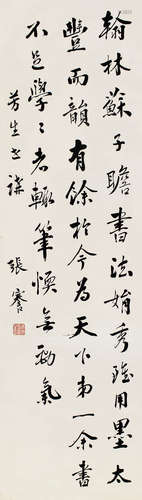 翰林蘇子瞻書法娟秀雖用墨太
豐而韻有餘於今為天下弟一余書
不足學〻者輒筆愞無勁氣
芳生世講
張謇